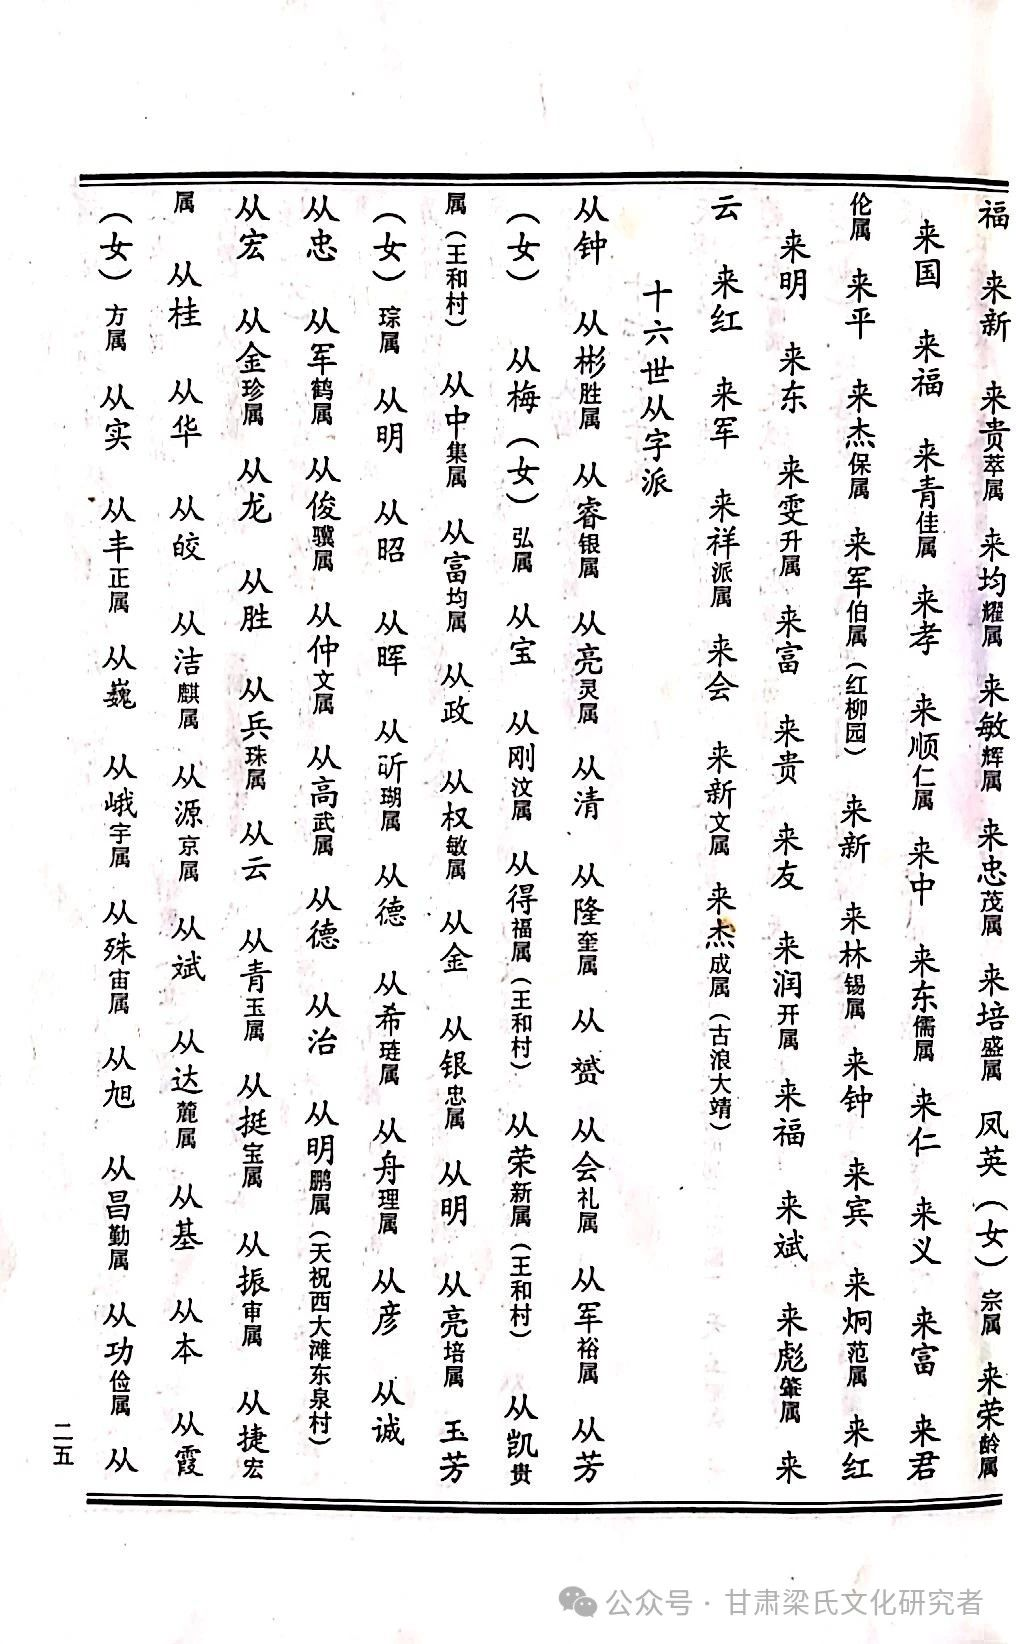 福 来新 来贵萃属 来均耀属 来敏辉属 来忠茂属 来培盛属 凤英（女）宗属 来荣龄属
来国 来福 来青佳属 来孝 来顺仁属 来中 来东儒属 来仁 来义 来富 来君
伦属 来平 来杰保属 来军伯属（红柳园） 来新 来林锡属 来钟 来宾 来炯范属 来红
来明 来东 来雯升属 来富 来贵 来友 来润开属 来福 来斌 来彪肇属 来
云 来红 来军 来祥派属 来会 来新文属 来杰成属（古浪大靖）
十六世从字派
从钟 从彬胜属 从睿银属 从亮灵属 从清 从隆奎属 从赟 从会礼属 从军裕属 从芳
（女） 从梅（女）弘属 从宝 从刚汶属 从得福属（王和村） 从荣新属（王和村） 从凯贵
属（王和村） 从中集属 从富均属 从政 从权敏属 从金 从银忠属 从明 从亮培属 玉芳
（女）琮属 从明 从昭 从晖 从昕瑚属 从德 从希琏属 从舟理属 从彦 从诚
从忠 从军鹤属 从俊骥属 从仲文属 从高武属 从德 从治 从明鹏属（天祝西大滩东泉村）
从宏 从金珍属 从龙 从胜 从兵珠属 从云 从青玉属 从挺宝属 从振申属 从捷宏
属 从桂 从华 从皎 从洁麒属 从源京属 从斌 从达麓属 从基 从本 从霞
（女）方属 从实 从丰正属 从巍 从峨宇属 从殊宙属 从旭 从昌勤属 从功俭属 从
二五
公众号·甘肃梁氏文化研究者